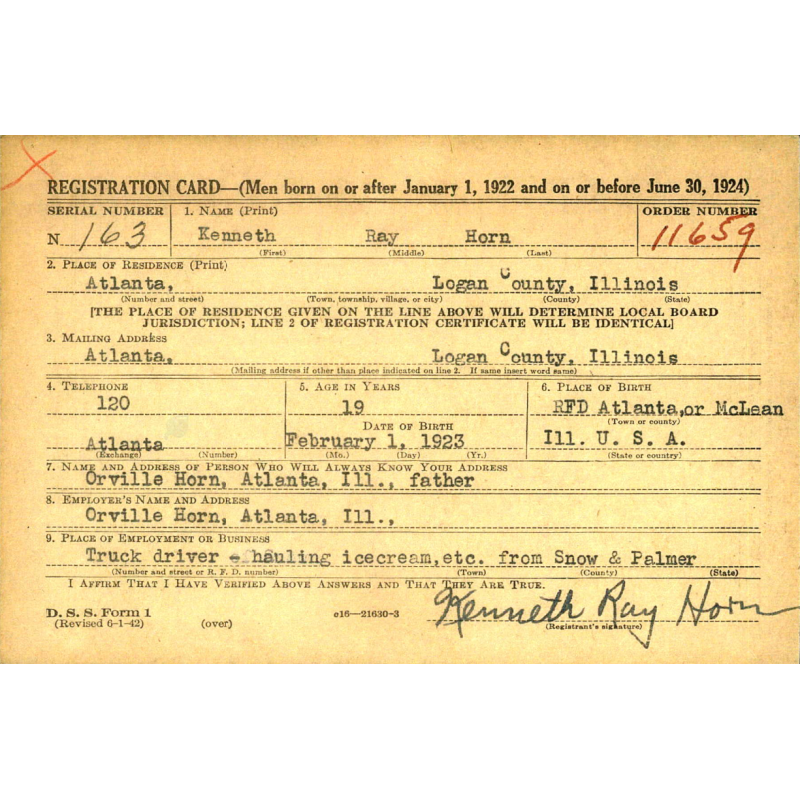 REGISTRATION CARD—(Men born on or after January 1, 1922 and on or before June 30, 1924)
SERIAL NUMBER 1. NAME (Print) ORDER NUMBER
N 163 Kenneth Ray Horn 11659
(First) (Middle) (Last)
2. PLACE OF RESIDENCE (Print)
Atlanta, Logan County, Illinois
(Number and street) (Town, township, village, or city) (County) (State)
[THE PLACE OF RESIDENCE GIVEN ON THE LINE ABOVE WILL DETERMINE LOCAL BOARD
JURISDICTION; LINE 2 OF REGISTRATION CERTIFICATE WILL BE IDENTICAL]
3. MAILING ADDRESS
Atlanta, Logan County, Illinois
(Mailing address if other than place indicated on line 2. If same insert word same)
4. TELEPHONE 5. AGE IN YEARS 6. PLACE OF BIRTH
120 19 RFD Atlanta,or McLean
(Town or county)
DATE OF BIRTH
Atlanta February 1, 1923 Ill. U. S. A.
(Exchange) (Number) (Mo.) (Day) (Yr.) (State or country)
7. NAME AND ADDRESS OF PERSON WHO WILL ALWAYS KNOW YOUR ADDRESS
Orville Horn, Atlanta, Ill., father
8. EMPLOYER'S NAME AND ADDRESS
Orville Horn, Atlanta, Ill.,
9. PLACE OF EMPLOYMENT OR BUSINESS
Truck driver - hauling icecream,etc. from Snow & Palmer
(Number and street or R. F. D. number) (Town) (County) (State)
I AFFIRM THAT I HAVE VERIFIED ABOVE ANSWERS AND THAT THEY ARE TRUE.
D. S. S. Form 1 e16—21630-3 Kenneth Ray Horn
(Revised 6-1-42) (over) (Registrant's signature)